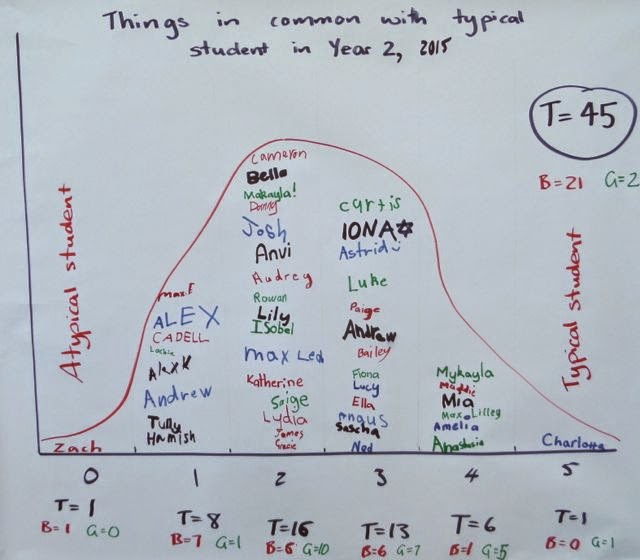 Things in common with typical
student in Year 2, 2015
T= 45
B=21 G=2
Atypical student
Typical student
Zach
max.E
ALEX
CADELL
Lachie
Alex K
Andrew
Tully
Hamish
Cameron
Bella
Makayla!
Danny
Josh
Anvi
Audrey
Rowan
Lily
ISobel
max Led
Katherine
Saige
Lydia
James
Gracie
curtis
IONA
Astrid
Luke
Paige
Andrew
Bailey
Fiona
Lucy
Ella
Angus
Sascha
Ned
Mykayla
Maddie
Mia
Max Lilley
Amelia
Anastasia
Charlotte
0 1 2 3 4 5
T=1
B=1 G=0
T=8
B=7 G=1
T=16
B=6 G=10
T=13
B=6 G=7
T=6
B=1 G=5
T=1
B=0 G=1